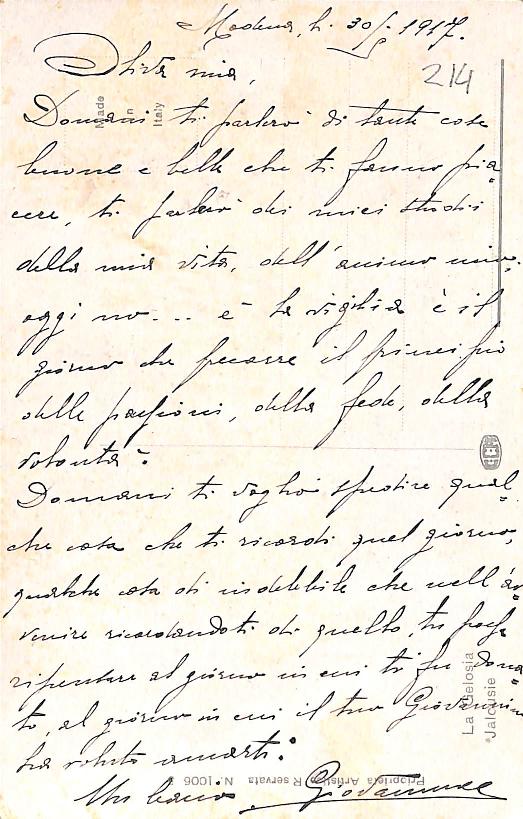 Modena, li 30/5 1917.
214
Oliva mia,
Domani ti parlerò di tante cose
buone e belle che ti fanno pia=
cere, ti parlerò dei miei studii
della mia vita, dell'animo mio,
oggi no... è la vigilia è il
giorno che precorre il principio
delle passioni, della fede, della
volontà.
Domani ti voglio spedire qual=
che cosa che ti ricordi quel giorno,
qualche cosa di indelebile che nell'av=
venire ricordandoti di quello, tu possa
ripensare al giorno in cui ti fu dona=
to, al giorno in cui il tuo Giovannino
ha voluto amarti.
Un bacio Giovannino
Made in Italy
La Gelosia
Jalousie
Proprietà Artistica Riservata N. 1006